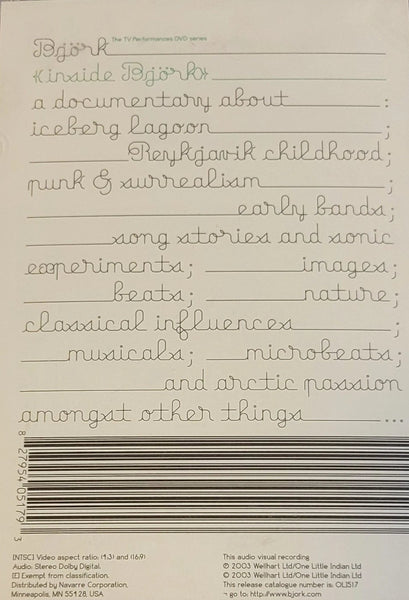 Björk The TV Performances DVD series
{inside Björk}
a documentary about :
iceberg lagoon ;
Reykjavik childhood;
punk & surrealism ;
early bands;
song stories and sonic
experiments; images;
beats; nature;
classical influences ;
musicals; microbeats;
and arctic passion
amongst other things ...
8 27954 05179 3
[NTSC] Video aspect ratio: (4:3) and (16:9)
Audio. Stereo Dolby Digital.
[E] Exempt from classification.
Distributed by Navarre Corporation,
Minneapolis, MN 55428, USA
This audio visual recording
℗ 2003 Wellhart Ltd/One Little Indian Ltd
© 2003 Wellhart Ltd/One Little Indian Ltd
This release catalogue number is: OLI517
¬ go to: http://www.bjork.com